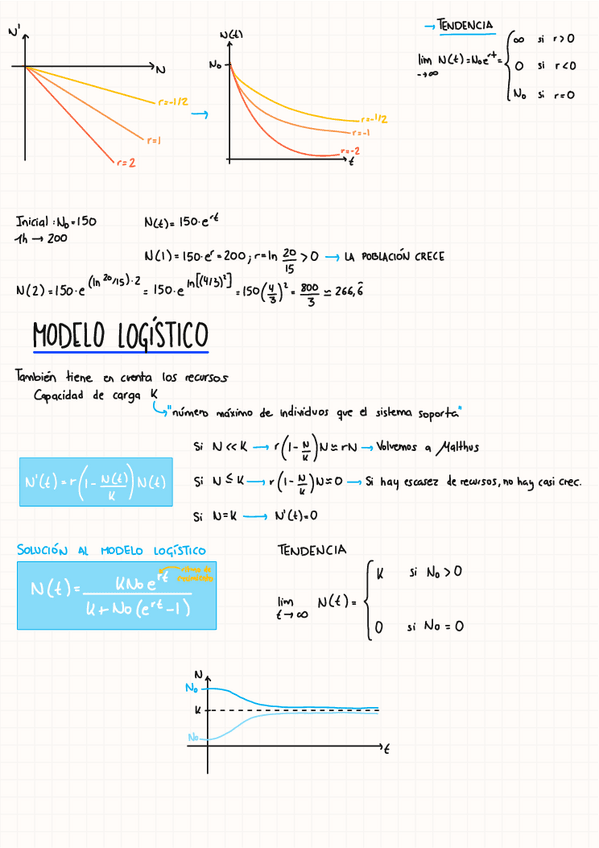 N'
N
r=-1/2
r=1
r=2
N(t)
N₀
r=-1/2
r=-1
r=-2
t
→ TENDENCIA
lim N(t)=N₀e^rt =
→∞
∞ si r>0
0 si r<0
N₀ si r=0
Inicial: N₀=150 N(t)= 150·e^rt
1h → 200
N(1)=150·e^r=200; r=ln 20/15 >0 → LA POBLACIÓN CRECE
N(2)=150·e^(ln 20/15)·2 = 150·e^ln[(4/3)²] =150(4/3)² = 800/3 ≃ 266,6̂
MODELO LOGÍSTICO
También tiene en cventa los recursos
Capacidad de carga K
"número máximo de individuos que el sistema soporta"
Si N<<K → r(1-N/K)N≃rN → Volvemos a Malthus
N'(t)=r(1-N(t)/K)N(t)
Si N≤K → r(1-N/K)N≃0 → Si hay escasez de recursos, no hay casi crec.
Si N=K → N'(t)=0
SOLUCIÓN AL MODELO LOGÍSTICO
N(t)= KN₀e^rt / K+N₀(e^rt-1)
TENDENCIA
lim N(t)=
t→∞
K si N₀>0
0 si N₀=0
N
N₀
K
N₀
t